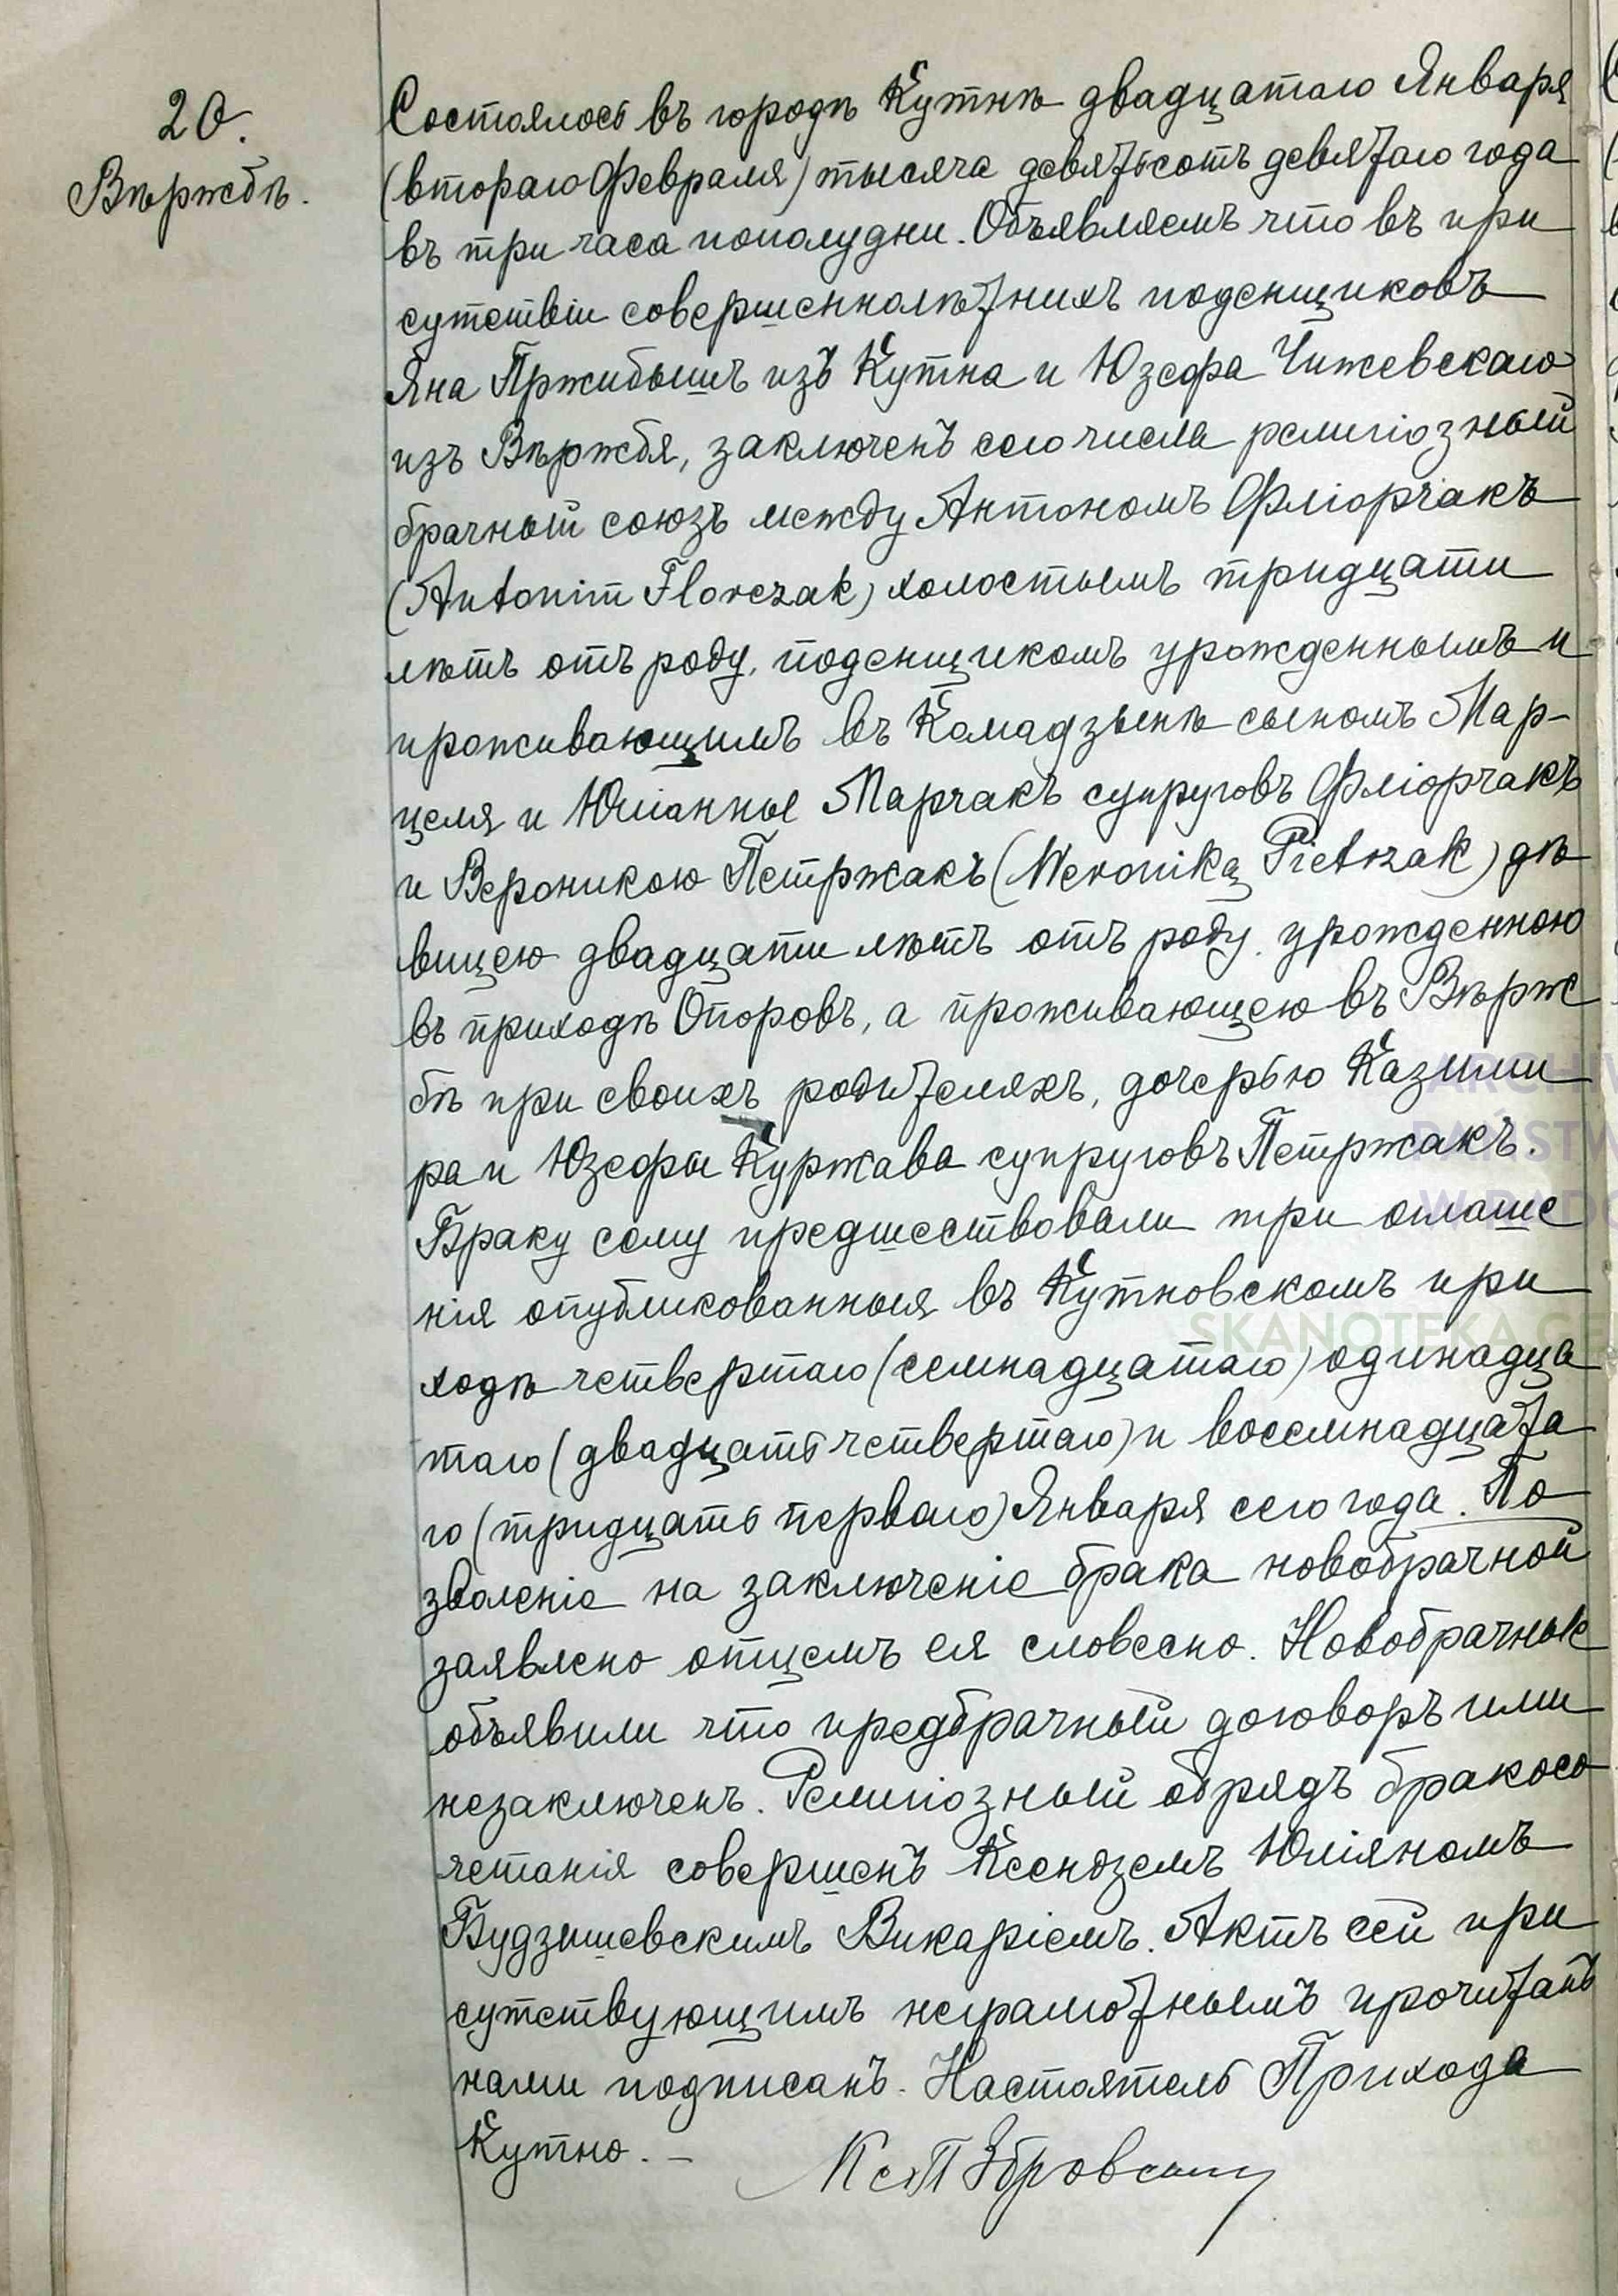 20.
Вѣржбѣ.
Состоялось въ городѣ Кутнѣ двадцатаго Января
(втораго Февраля) тысяча девятьсотъ девятаго года
въ три часа пополудни. Объявляемъ что въ при
сутствіи совершеннолѣтнихъ поденщиковъ
Яна Пржибышъ изъ Кутна и Юзефа Чижевскаго
изъ Вѣржбя, заключенъ сего числа религіозный
брачный союзъ между Антономъ Фліорчакъ
(Antonim Florczak) холостымъ тридцати
лѣтъ отъ роду, поденщикомъ урожденнымъ и
проживающимъ въ Комадзынѣ сыномъ Мар-
целя и Юліанны Марчакъ супруговъ Фліорчакъ
и Вероникою Петржакъ (Weroniką Pietrzak) дѣ
вицею двадцати лѣтъ отъ роду, урожденною
въ приходѣ Опоровъ, а проживающею въ Вѣрж
бѣ при своихъ родителяхъ, дочерью Казими
ра и Юзефы Куржава супруговъ Петржакъ.
Браку сему предшествовали три оглаше
нія опубликованныя въ Кутновскомъ при
ходѣ четвертаго (семнадцатаго) одинадца
таго (двадцать четвертаго) и восемнадцата
го (тридцать перваго) Января сего года. По
зволеніе на заключеніе брака новобрачной
заявлено отцемъ ея словесно. Новобрачные
объявили что предбрачный договоръ ими
незаключенъ. Религіозный обрядъ бракосо
четанія совершенъ Ксендземъ Юліяномъ
Будзишевскимъ Викаріемъ. Актъ сей при
сутствующимъ неграмотнымъ прочитанъ
нами подписанъ. Настоятель Прихода
Кутно. –
SKANOTEKA.GE